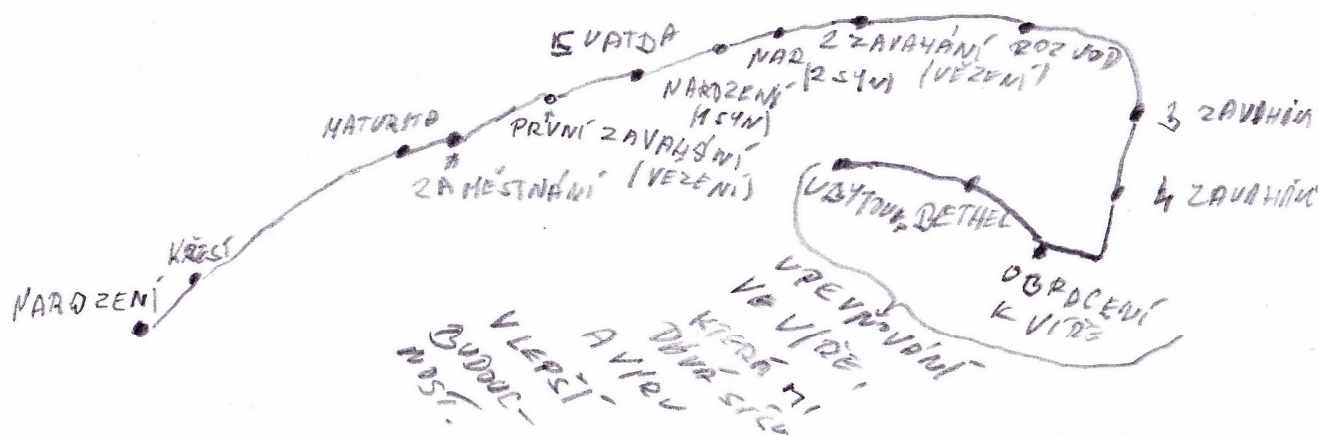 NAROZENÍ
KŘEST
MATURITA
ZAMĚSTNÁNÍ
PRVNÍ ZAVAHÁNÍ
(VĚZENÍ)
SVATBA
NAROZENÍ
(1 SYN)
NAR
(2 SYN)
2 ZAVAHÁNÍ
(VĚZENÍ)
ROZVOD
3 ZAVAHÁNÍ
4 ZAVAHÁNÍ
OBRÁCENÍ
K VÍŘE
BETHEL
UBYTOV.
UPEVŇOVÁNÍ
VE VÍŘE,
KTERÁ MI
DÁVÁ SÍLU
A VÍRU
V LEPŠÍ
BUDOUC-
NOST.